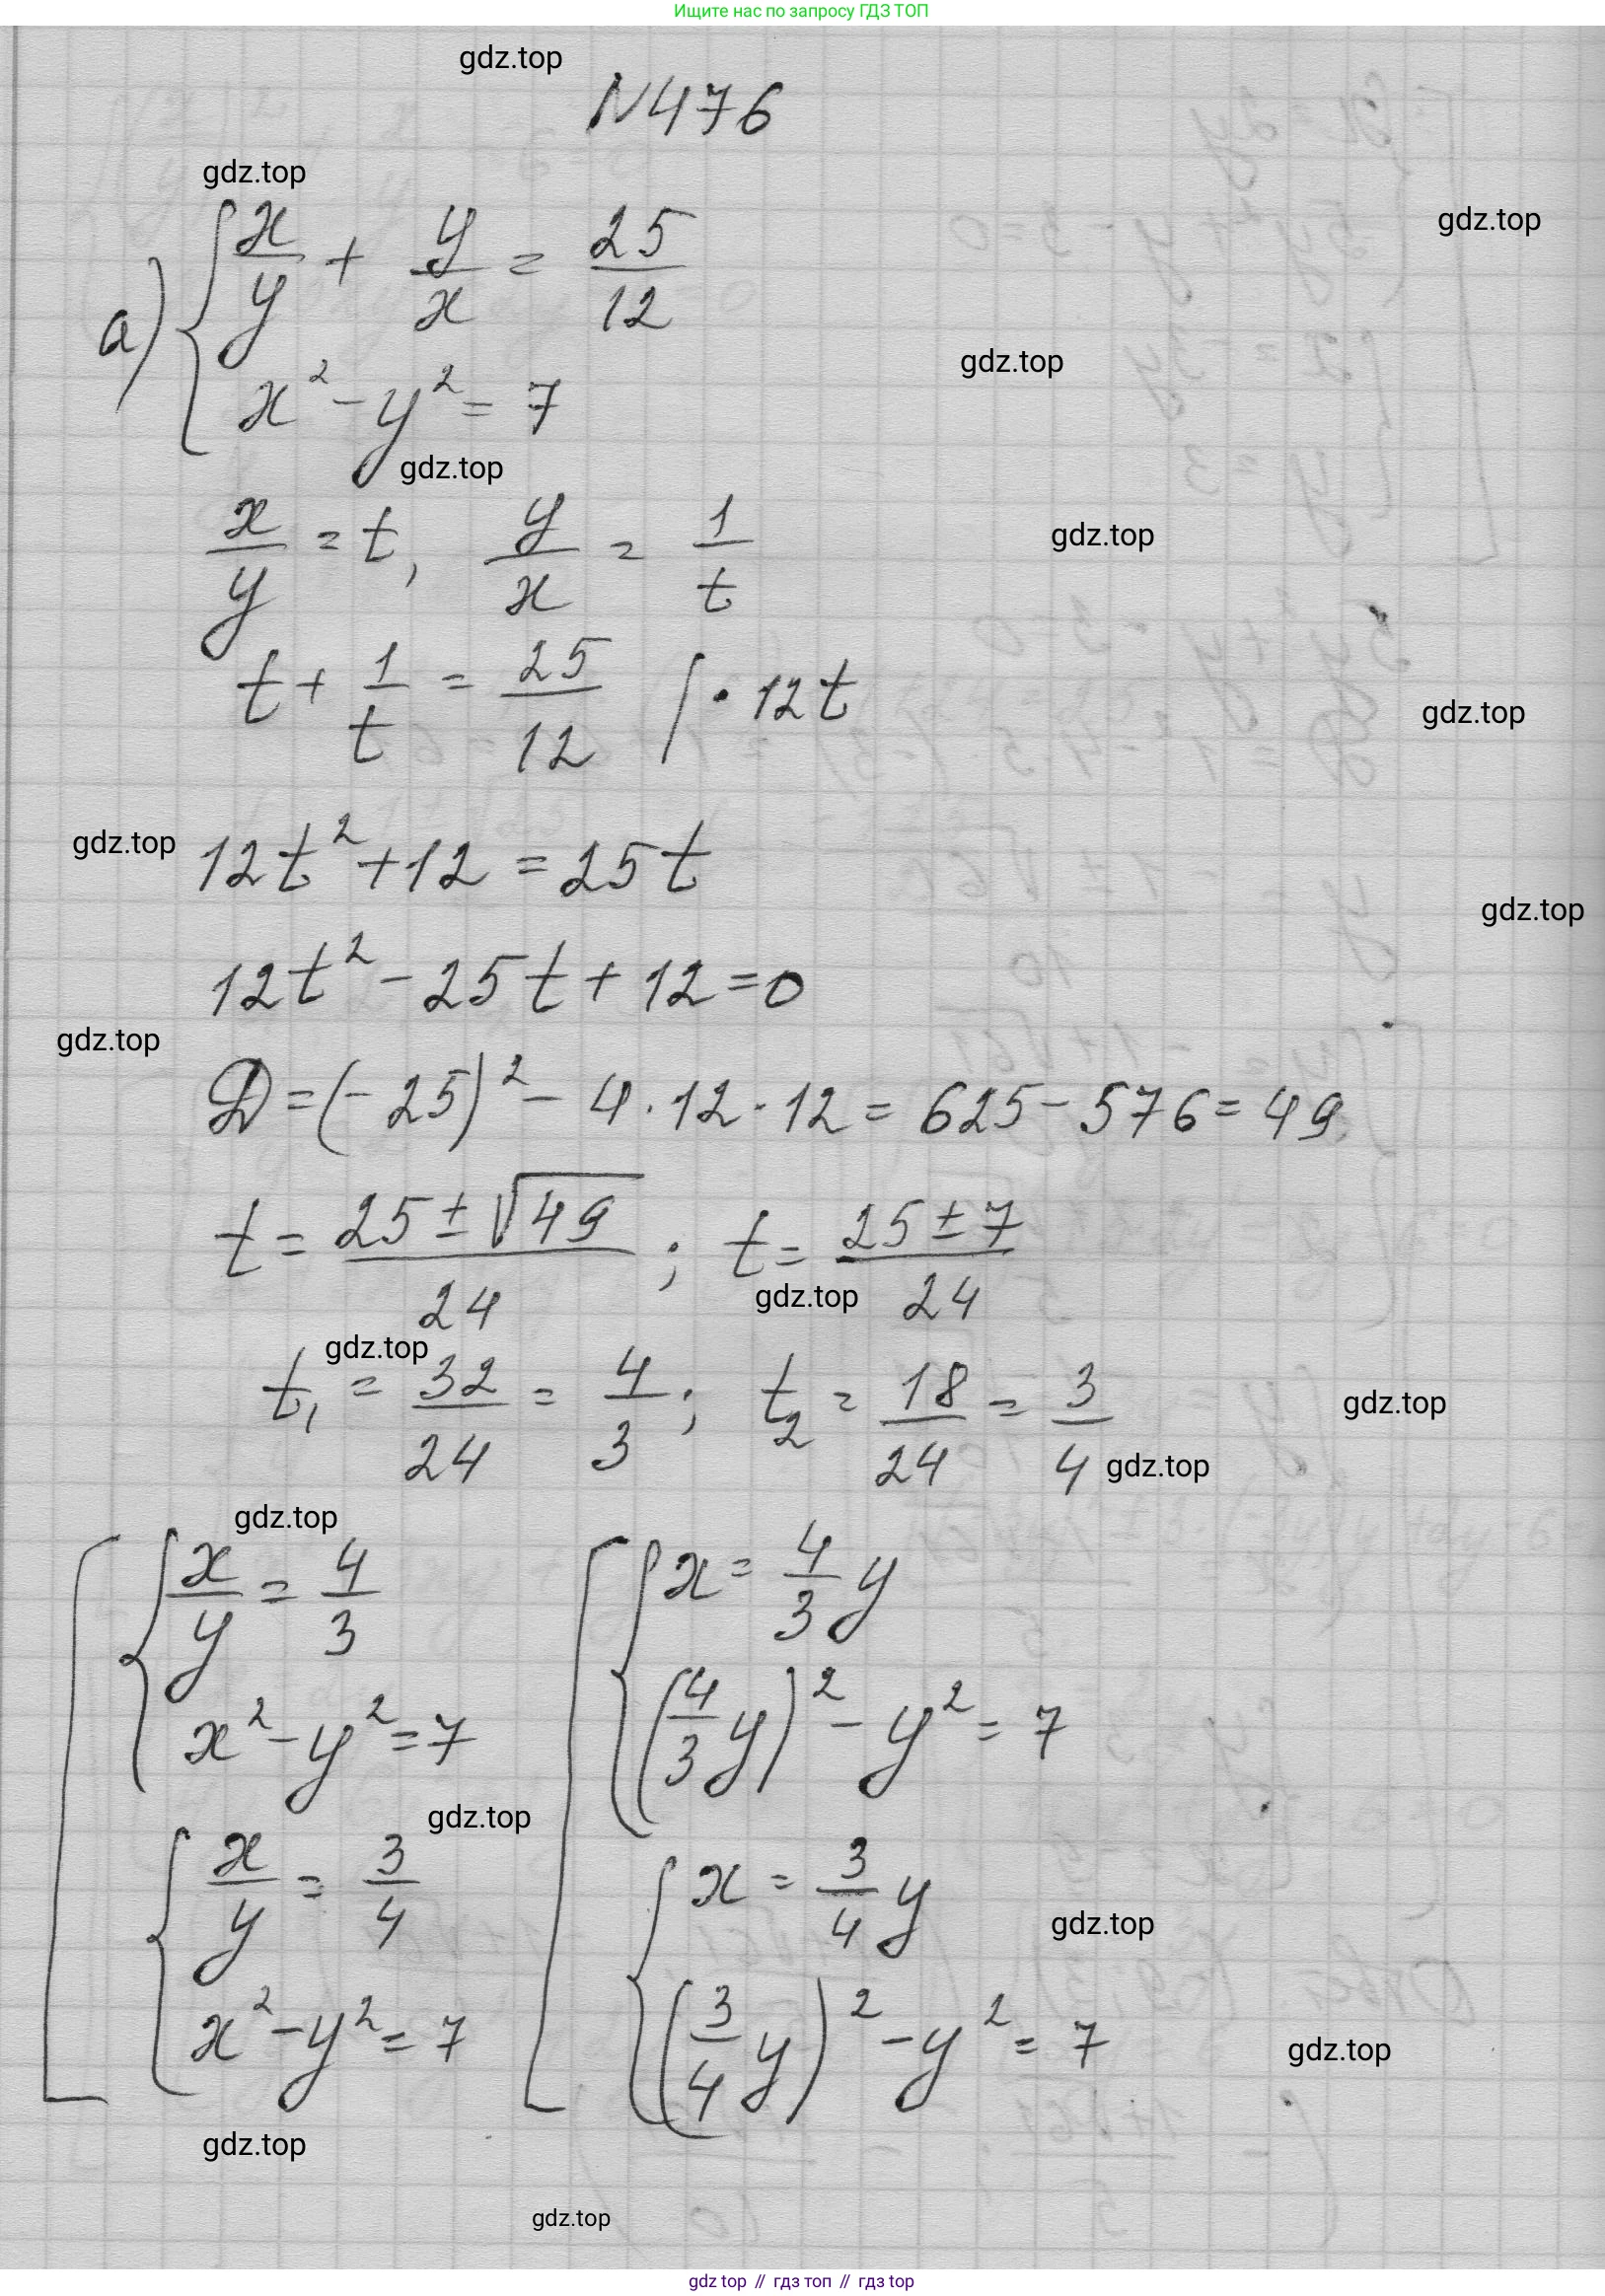 Ищите нас по запросу ГДЗ ТОП
gdz.top
N476
gdz.top
gdz.top
а) { x/y + y/x = 25/12
x² - y² = 7
gdz.top
gdz.top
x/y = t, y/x = 1/t
gdz.top
t + 1/t = 25/12 | · 12t
gdz.top
gdz.top
12t² + 12 = 25t
gdz.top
12t² - 25t + 12 = 0
gdz.top
D = (-25)² - 4 · 12 · 12 = 625 - 576 = 49
t = (25 ± √49)/24 ; t = (25 ± 7)/24
gdz.top
gdz.top
t₁ = 32/24 = 4/3 ; t₂ = 18/24 = 3/4
gdz.top
gdz.top
gdz.top
[ { x/y = 4/3 [ { x = 4/3 y
x² - y² = 7 (4/3 y)² - y² = 7
gdz.top
{ x/y = 3/4 { x = 3/4 y
gdz.top
x² - y² = 7 (3/4 y)² - y² = 7
gdz.top
gdz.top
gdz.top
gdz top // гдз топ // гдз top